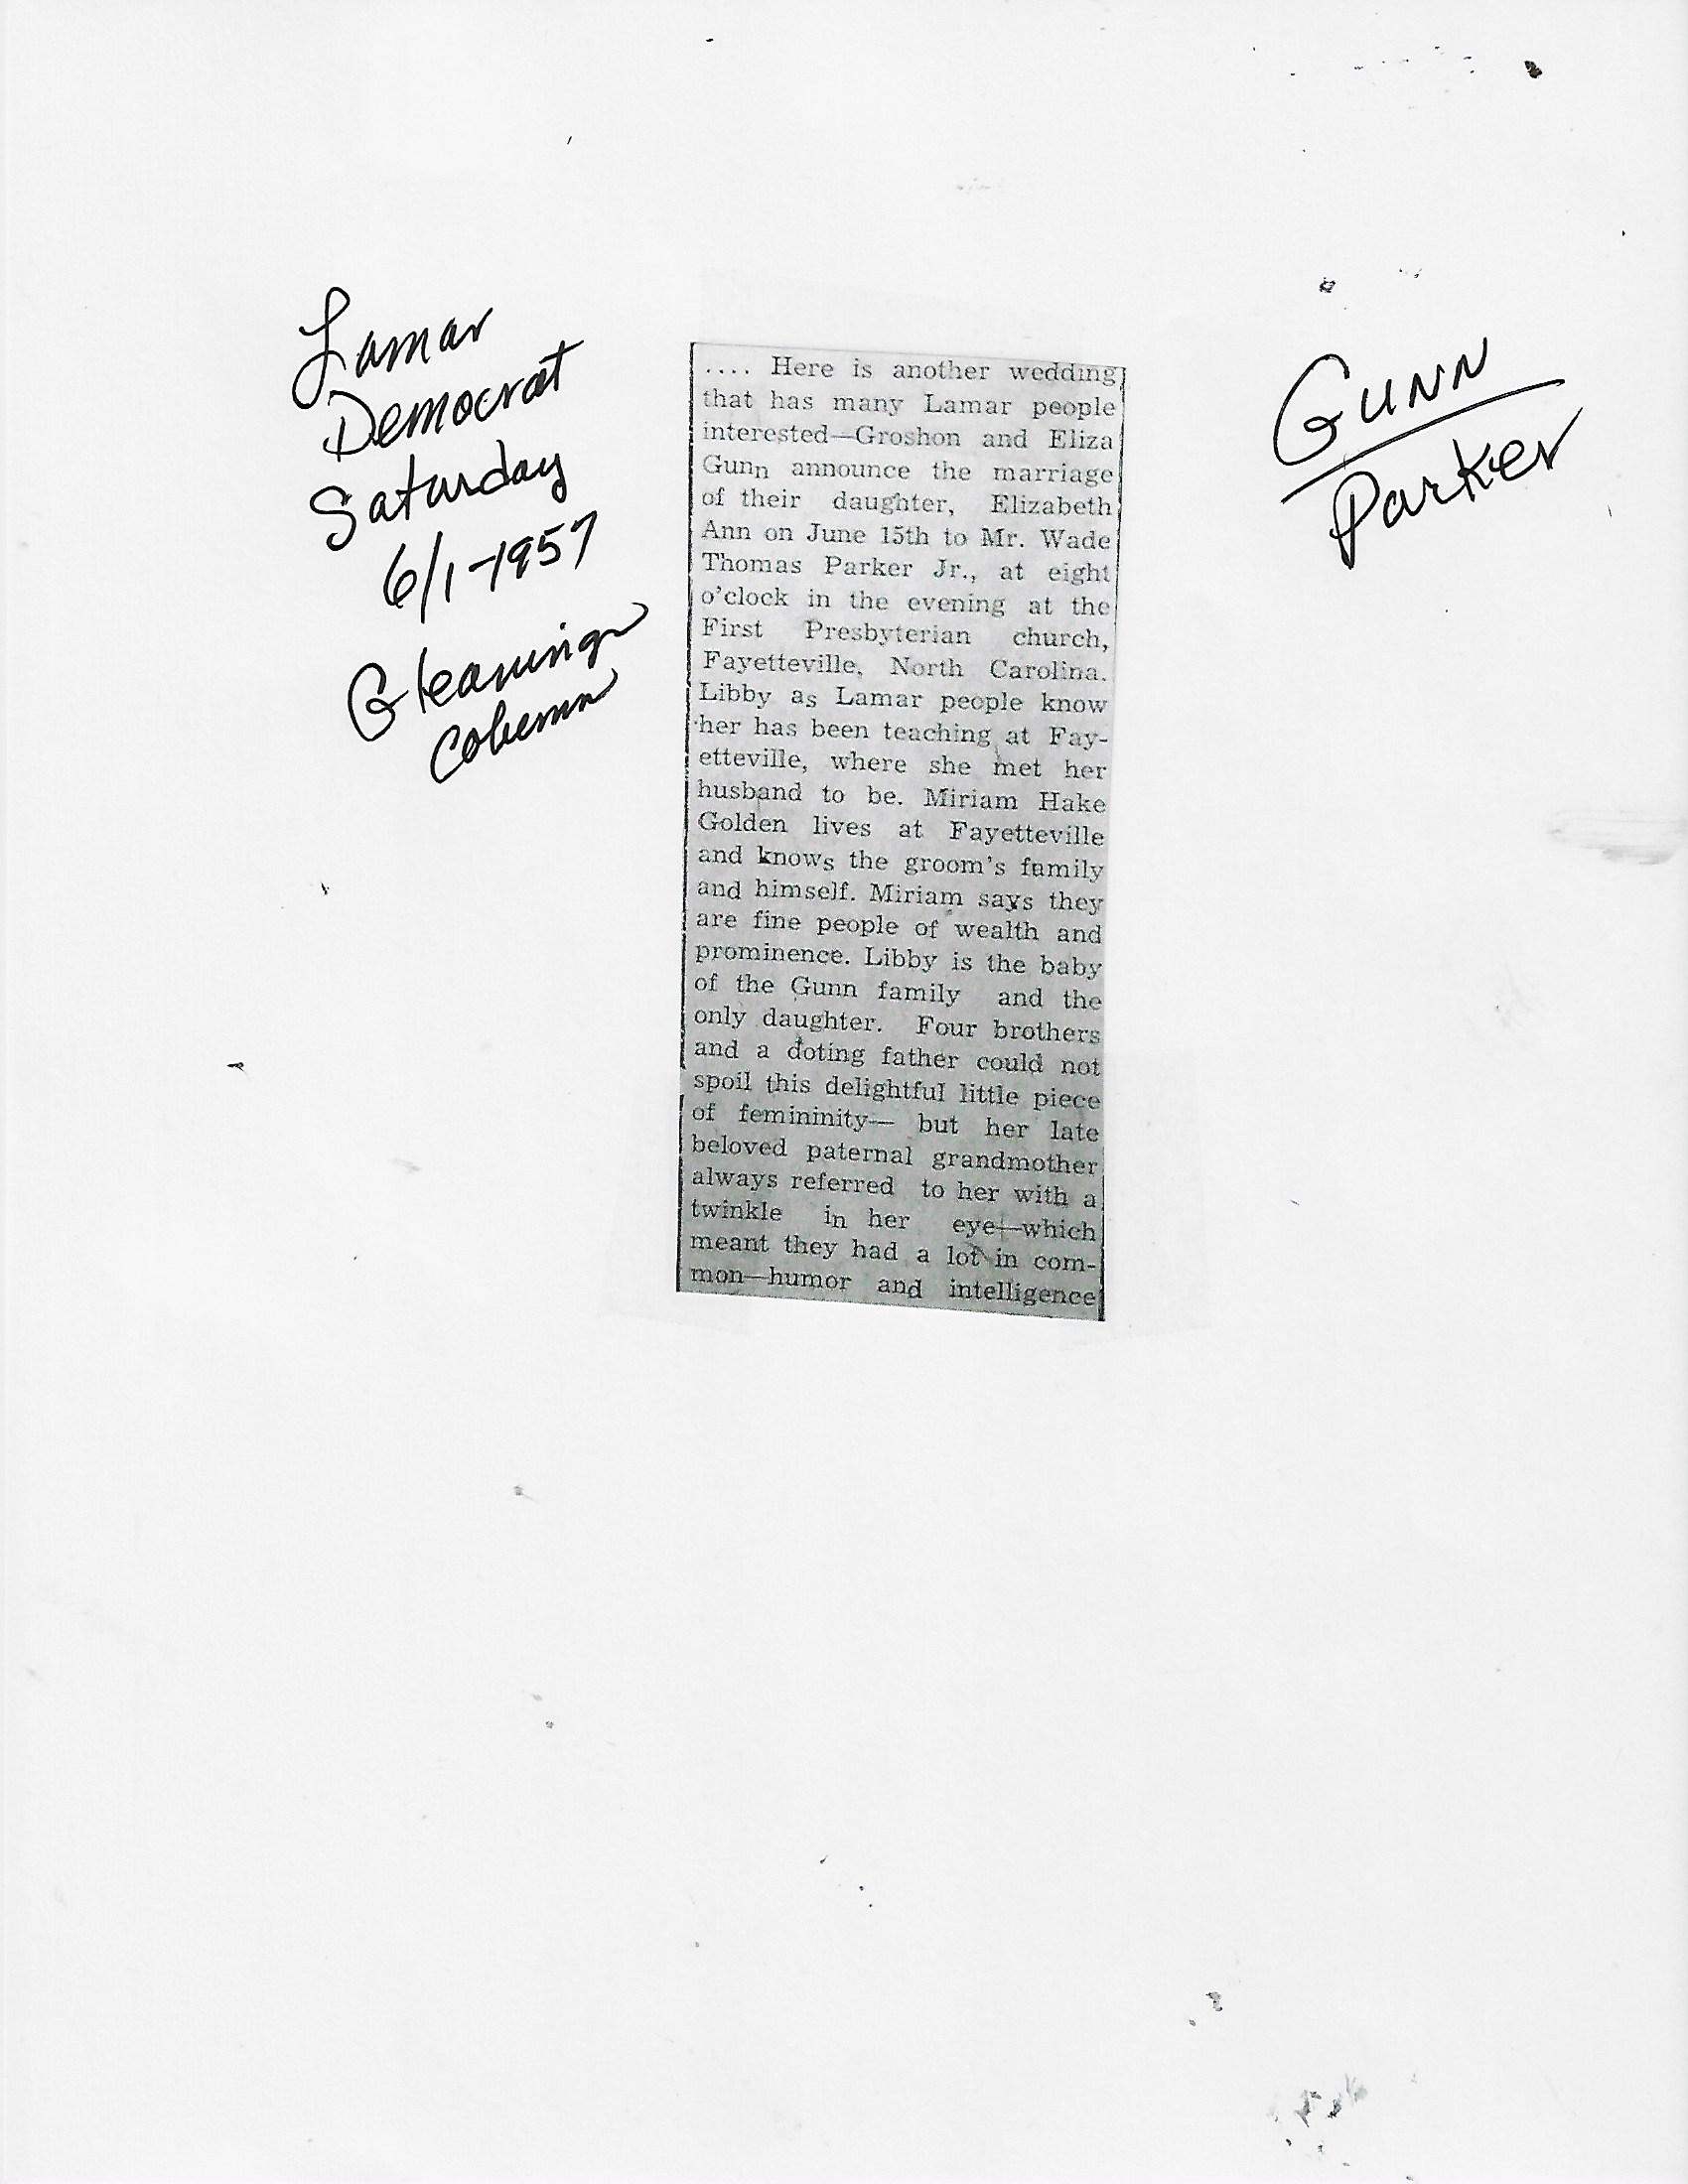 Lamar
Democrat
Saturday
6/1-1957
Gleanings
Column
Gunn
Parker
.... Here is another wedding
that has many Lamar people
interested—Groshon and Eliza
Gunn announce the marriage
of their daughter, Elizabeth
Ann on June 15th to Mr. Wade
Thomas Parker Jr., at eight
o'clock in the evening at the
First Presbyterian church,
Fayetteville, North Carolina.
Libby as Lamar people know
her has been teaching at Fay-
etteville, where she met her
husband to be. Miriam Hake
Golden lives at Fayetteville
and knows the groom's family
and himself. Miriam says they
are fine people of wealth and
prominence. Libby is the baby
of the Gunn family and the
only daughter. Four brothers
and a doting father could not
spoil this delightful little piece
of femininity— but her late
beloved paternal grandmother
always referred to her with a
twinkle in her eye—which
meant they had a lot in com-
mon—humor and intelligence